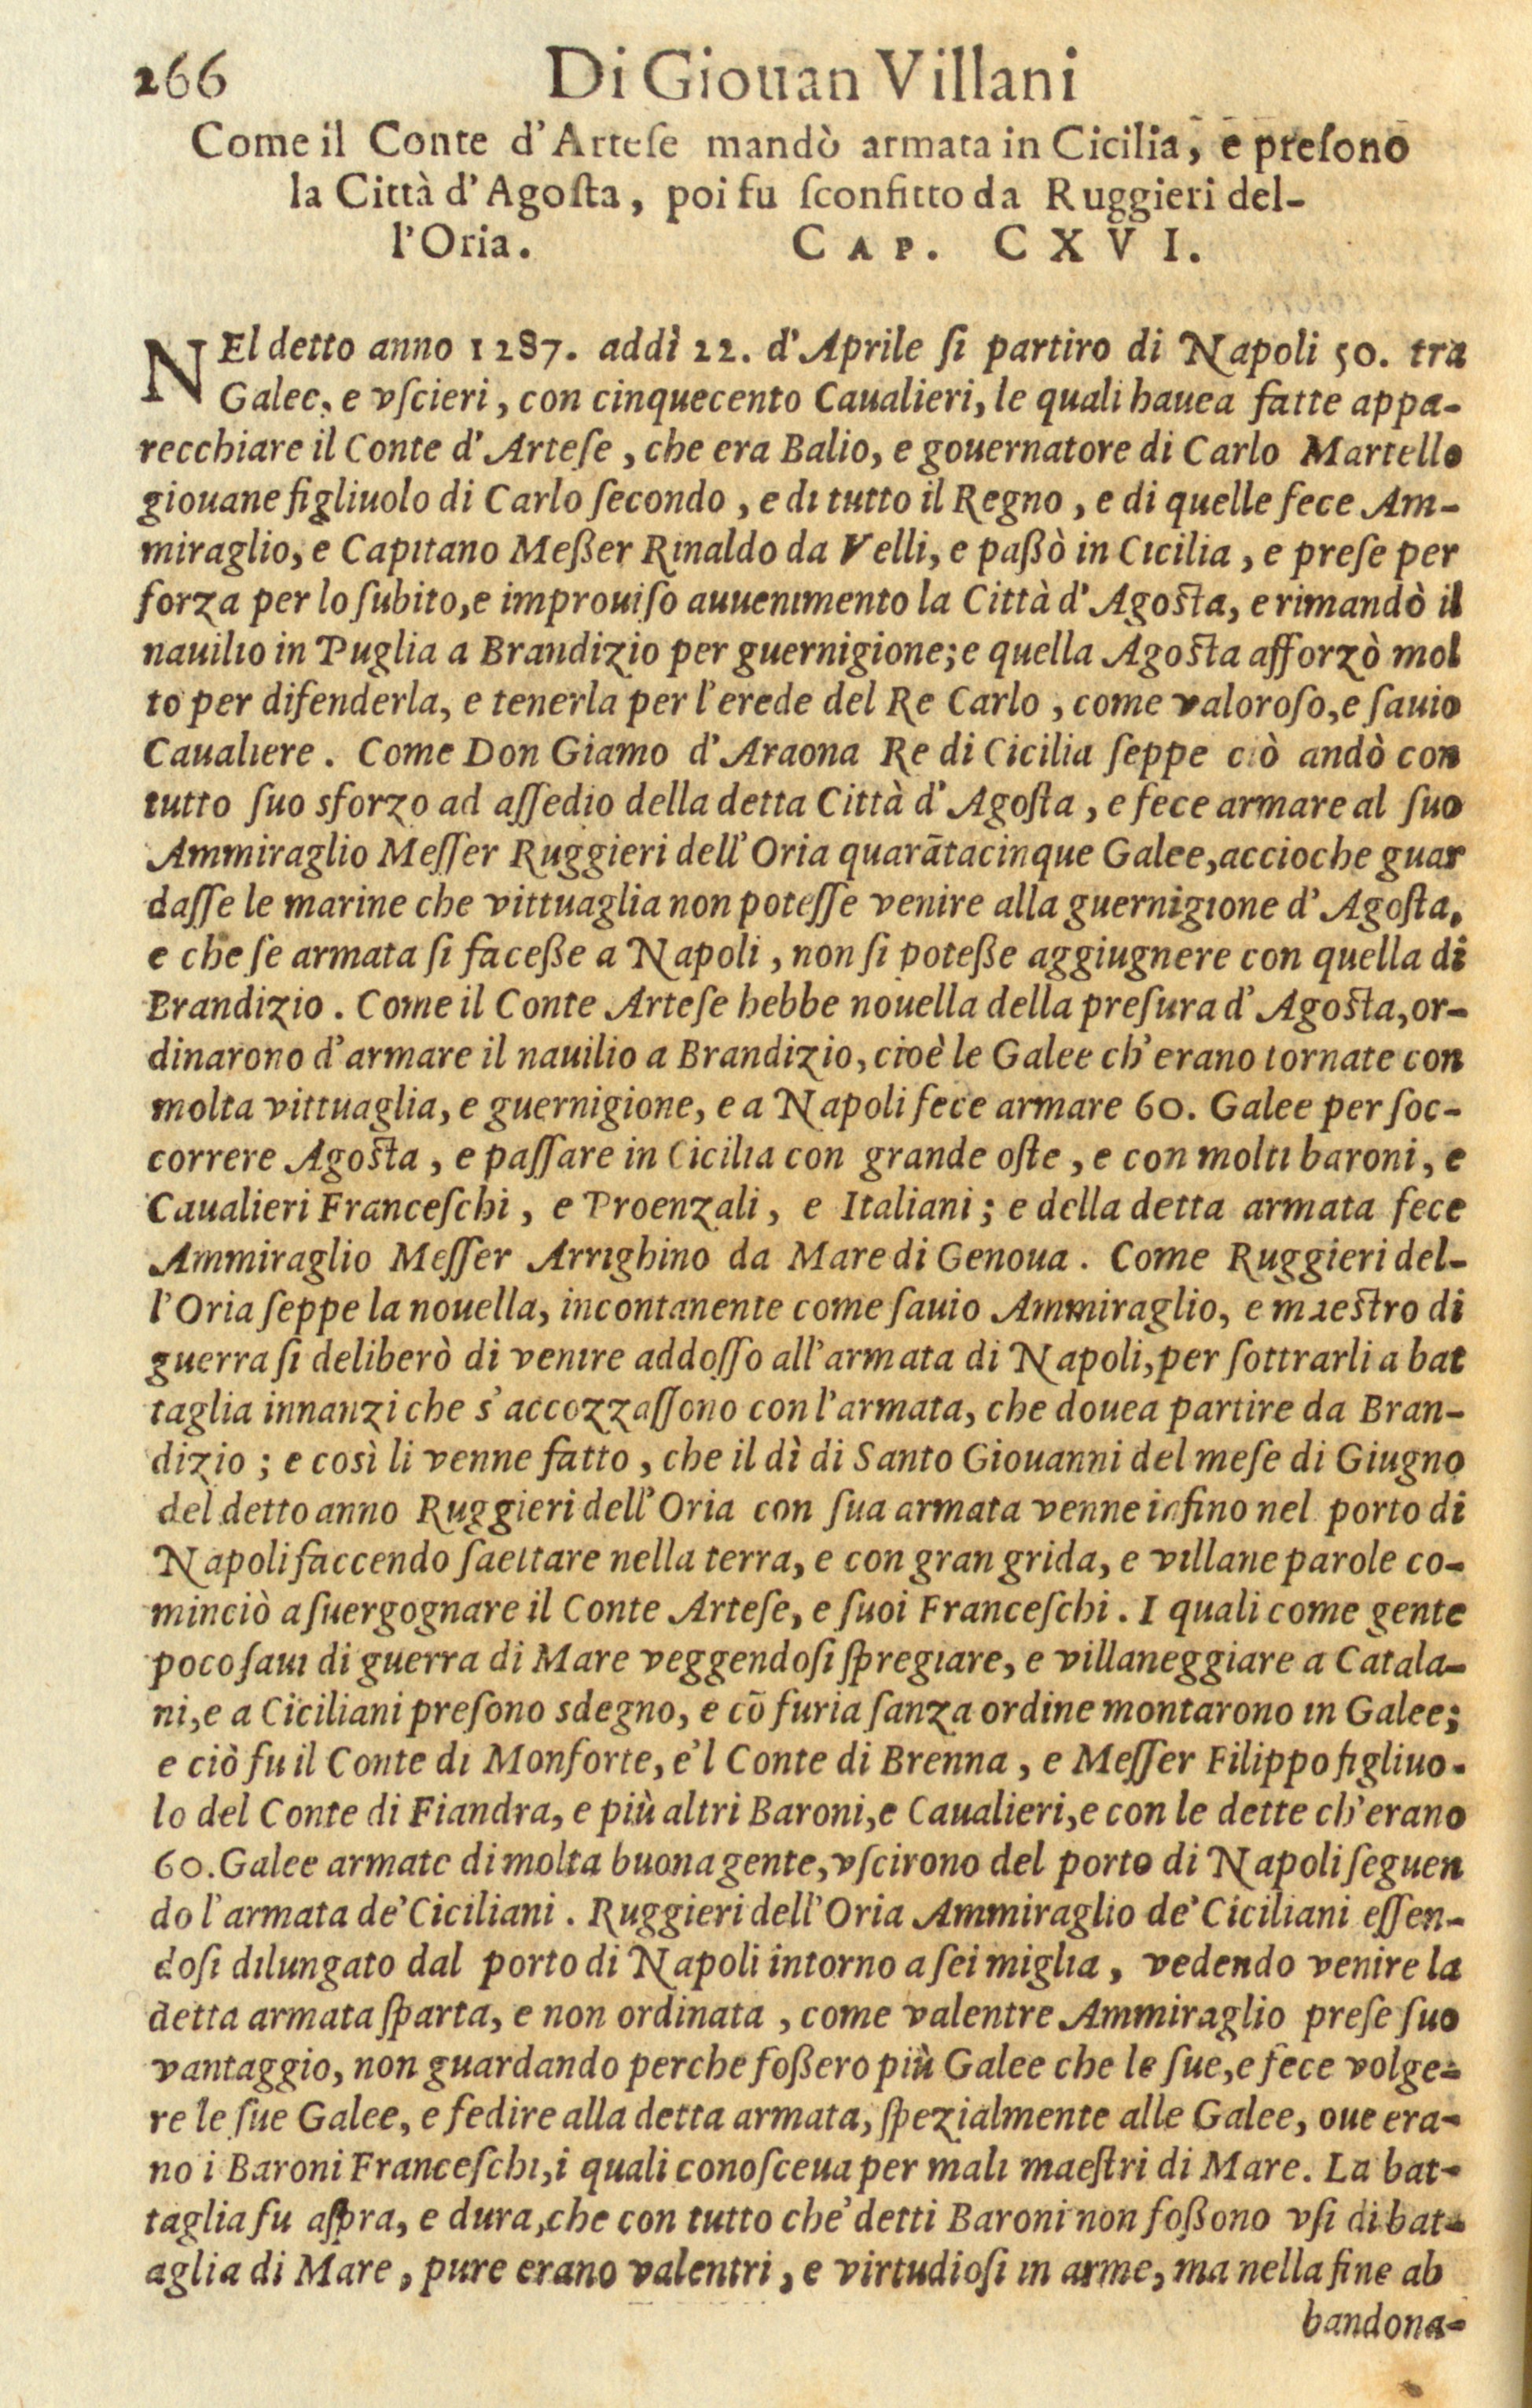 266 Di Giouan Villani
Come il Conte d'Artese mandò armata in Cicilia, e presono
la Città d'Agoſta, poi fu ſconfitto da Ruggieri del-
l'Oria. CAP. CXVI.
NEl detto anno 1287. addì 22. d'Aprile ſi partiro di Napoli 50. tra
Galee, e vſcieri, con cinquecento Caualieri, le quali hauea fatte appa-
recchiare il Conte d'Arteſe, che era Balio, e gouernatore di Carlo Martello
giouane figliuolo di Carlo ſecondo, e di tutto il Regno, e di quelle fece Am-
miraglio, e Capitano Meßer Rinaldo da Velli, e paßò in Cicilia, e preſe per
forza per lo ſubito, e improuiſo auuenimento la Città d'Agoſta, e rimandò il
nauilio in Puglia a Brandizio per guernigione; e quella Agoſta afforzò mol
to per difenderla, e tenerla per l'erede del Re Carlo, come valoroſo, e ſauio
Caualiere. Come Don Giamo d'Araona Re di Cicilia ſeppe ciò andò con
tutto ſuo sforzo ad aſſedio della detta Città d'Agoſta, e fece armare al ſuo
Ammiraglio Meſſer Ruggieri dell'Oria quarãtacinque Galee, accioche guar
daſſe le marine che vittuaglia non poteſſe venire alla guernigione d'Agoſta,
e che ſe armata ſi faceße a Napoli, non ſi poteße aggiugnere con quella di
Brandizio. Come il Conte Arteſe hebbe nouella della preſura d'Agoſta, or-
dinarono d'armare il nauilio a Brandizio, cioè le Galee ch'erano tornate con
molta vittuaglia, e guernigione, e a Napoli fece armare 60. Galee per ſoc-
correre Agoſta, e paſſare in Cicilia con grande oſte, e con molti baroni, e
Caualieri Franceſchi, e Proenzali, e Italiani; e della detta armata fece
Ammiraglio Meſſer Arrighino da Mare di Genoua. Come Ruggieri del-
l'Oria ſeppe la nouella, incontanente come ſauio Ammiraglio, e maeſtro di
guerra ſi deliberò di venire addoſſo all'armata di Napoli, per ſottrarli a bat
taglia innanzi che s'accozzaſſono con l'armata, che douea partire da Bran-
dizio; e così li venne fatto, che il dì di Santo Giouanni del meſe di Giugno
del detto anno Ruggieri dell'Oria con ſua armata venne infino nel porto di
Napoli faccendo ſaettare nella terra, e con gran grida, e villane parole co-
minciò a ſuergognare il Conte Arteſe, e ſuoi Franceſchi. I quali come gente
poco ſaui di guerra di Mare veggendoſi ſpregiare, e villaneggiare a Catala-
ni, e a Ciciliani preſono sdegno, e cõ furia ſanza ordine montarono in Galee;
e ciò fu il Conte di Monforte, e'l Conte di Brenna, e Meſſer Filippo figliuo-
lo del Conte di Fiandra, e più altri Baroni, e Caualieri, e con le dette ch'erano
60. Galee armate di molta buona gente, vſcirono del porto di Napoli ſeguen
do l'armata de'Ciciliani. Ruggieri dell'Oria Ammiraglio de'Ciciliani eſſen-
doſi dilungato dal porto di Napoli intorno a ſei miglia, vedendo venire la
detta armata ſparta, e non ordinata, come valentre Ammiraglio preſe ſuo
vantaggio, non guardando perche foßero più Galee che le ſue, e fece volge-
re le ſue Galee, e fedire alla detta armata, ſpezialmente alle Galee, oue era-
no i Baroni Franceſchi, i quali conoſceua per mali maeſtri di Mare. La bat-
taglia fu aſpra, e dura, che con tutto che'detti Baroni non foßono vſi di bat-
aglia di Mare, pure erano valentri, e virtudioſi in arme, ma nella fine ab
bandona-